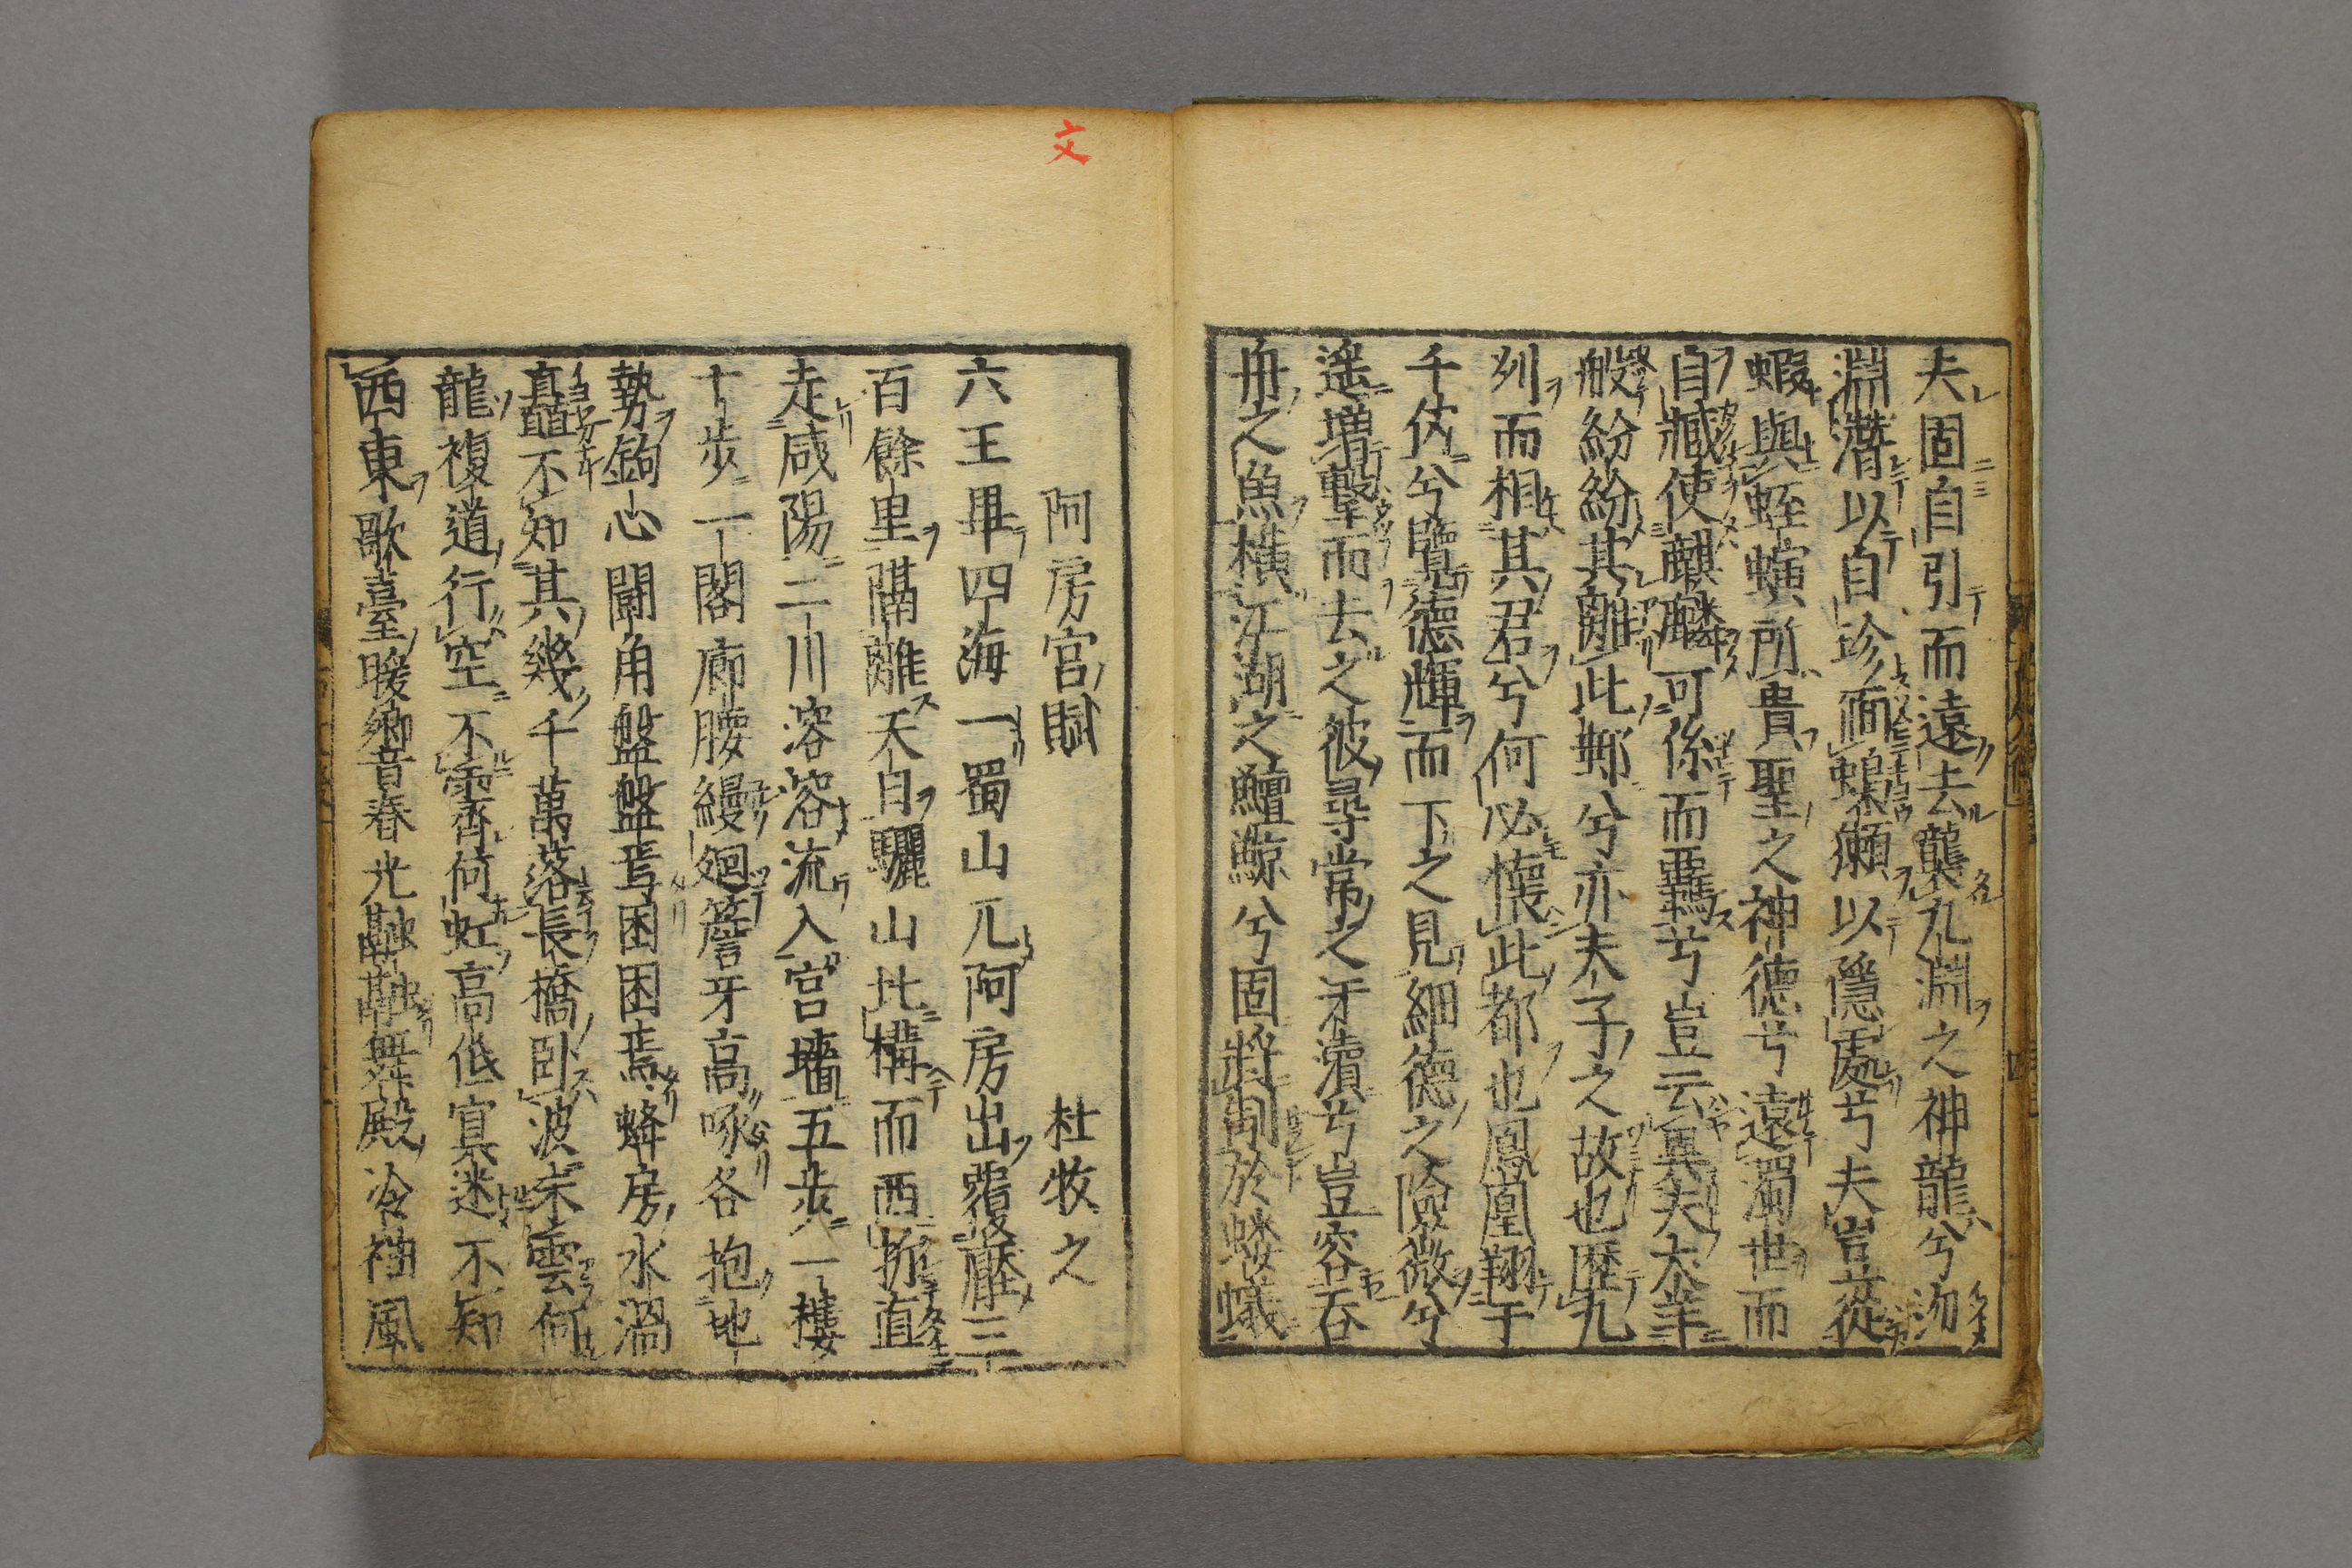 夫固自引而遠去襲九淵之神龍兮沕
淵潛以自珍偭蟂獺以隱處兮夫豈從
蝦與蛭螾所貴聖之神德兮遠濁世而
自臧使麒麟可係而羈兮豈云異夫犬羊
般紛紛其離此郵兮亦夫子之故也歷九
列而相其君兮何必懷此都也鳳凰翔于
千仞兮覽德輝而下之見細德之險微兮
遥增擊而去之彼尋常之汙瀆兮豈容吞
舟之魚橫江湖之鱣鯨兮固將制於螻蟻
文
阿房宮賦　杜牧之
六王畢四海一蜀山兀阿房出覆壓三
百餘里隔離天日驪山北構而西折直
走咸陽二川溶溶流入宮墻五步一樓
十步一閣廊腰縵廻簷牙高啄各抱地
勢鉤心鬬角盤盤焉囷囷焉蜂房水渦
矗不知其幾千萬落長橋臥波未雲何
龍複道行空不霽何虹高低冥迷不知
西東歌臺暖響春光融融舞殿冷袖風